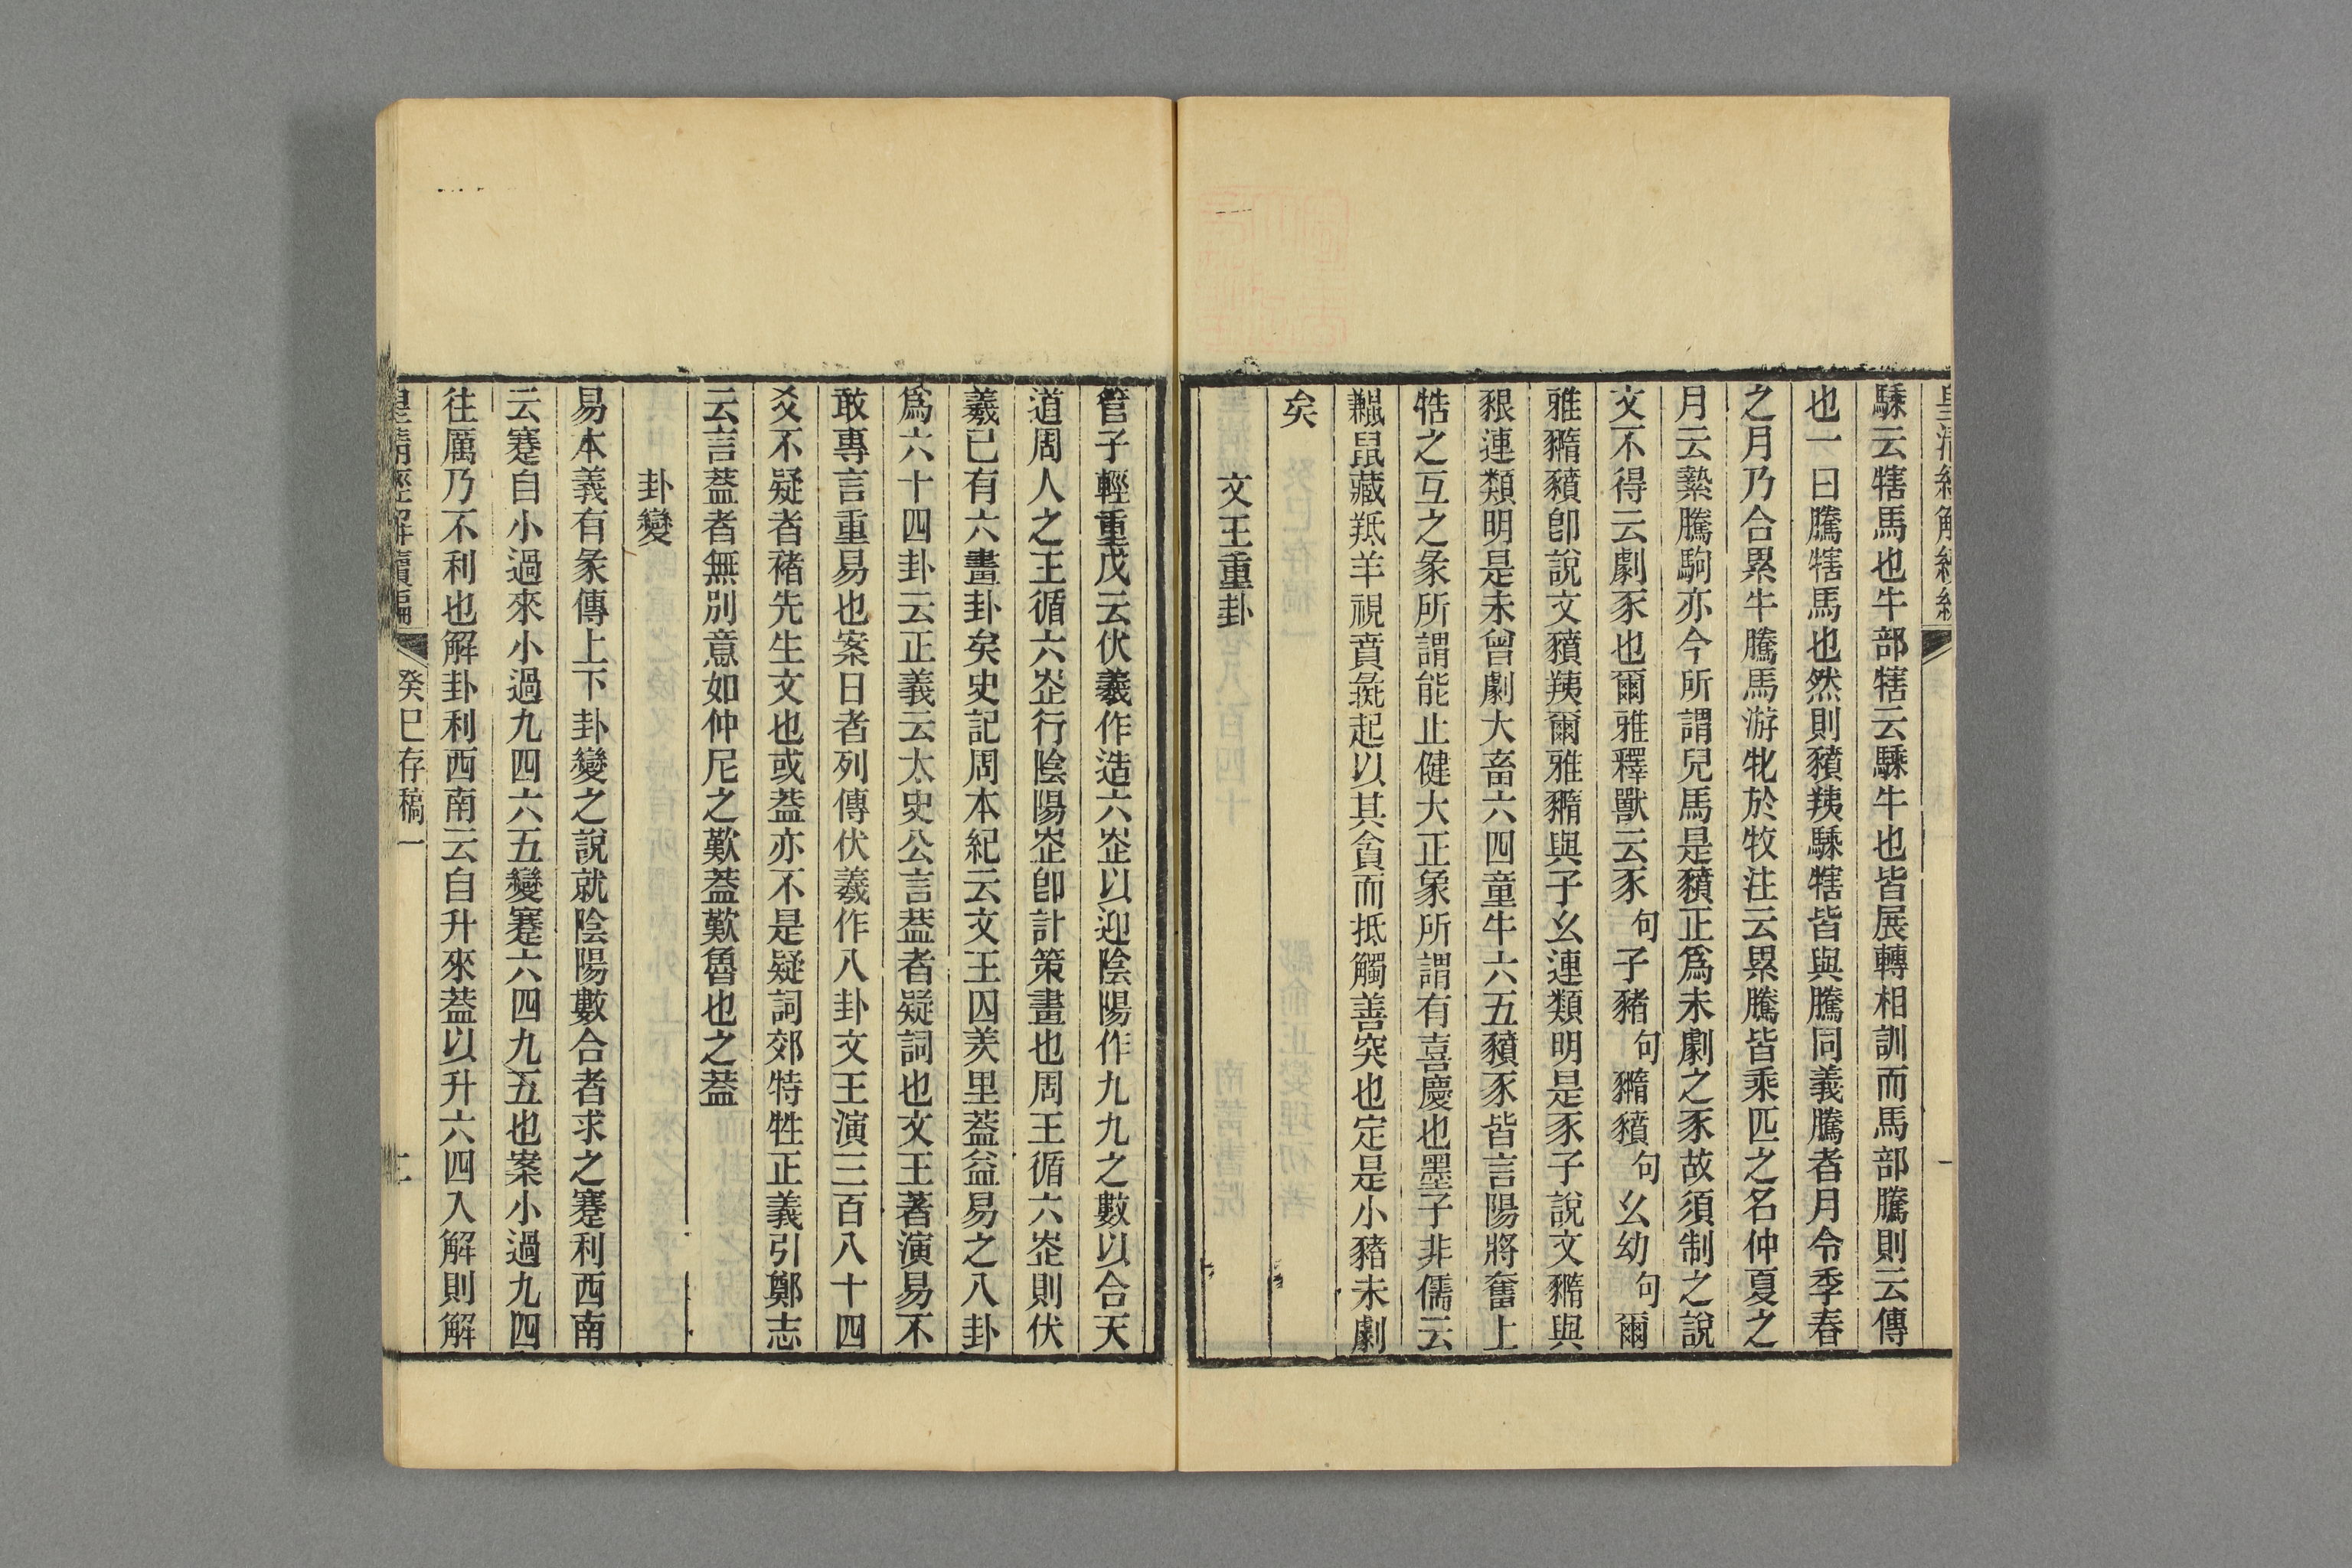 騬云犗馬也牛部犗云騬牛也皆展轉相訓而馬部騰則云傳
也一曰騰犗馬也然則豶羠騬犗皆與騰同義騰者月令季春
之月乃合累牛騰馬游牝於牧注云累騰皆乘匹之名仲夏之
月云縶騰駒亦今所謂兒馬是豶正爲未劇之豕故須制之說
文不得云劇豕也爾雅釋獸云豕句子豬句豬豶句幺幼句爾
雅豬豶卽說文豶羠爾雅豬與子幺連類明是豕子說文豬與
豤連類明是未曾劇大畜六四童牛六五豶豕皆言陽將奮上
牿之互之彖所謂能止健大正象所謂有喜慶也墨子非儒云
鼸鼠藏羝羊視賁彘起以其貪而抵觸善突也定是小豬未劇
矣
文王重卦
管子輕重戊云伏羲作造六峜以迎陰陽作九九之數以合天
道周人之王循六峜行陰陽峜卽計策畫也周王循六峜則伏
羲已有六畫卦矣史記周本紀云文王囚羑里蓋益易之八卦
爲六十四卦云正義云太史公言蓋者疑詞也文王著演易不
敢專言重易也案日者列傳伏羲作八卦文王演三百八十四
爻不疑者褚先生文也或蓋亦不是疑詞郊特牲正義引鄭志
云言蓋者無別意如仲尼之歎蓋歎魯也之蓋
卦變
易本義有彖傳上下卦變之說就陰陽數合者求之蹇利西南
云蹇自小過來小過九四六五變蹇六四九五也案小過九四
往厲乃不利也解卦利西南云自升來蓋以升六四入解則解
皇清經解續編
癸巳存稿一
二